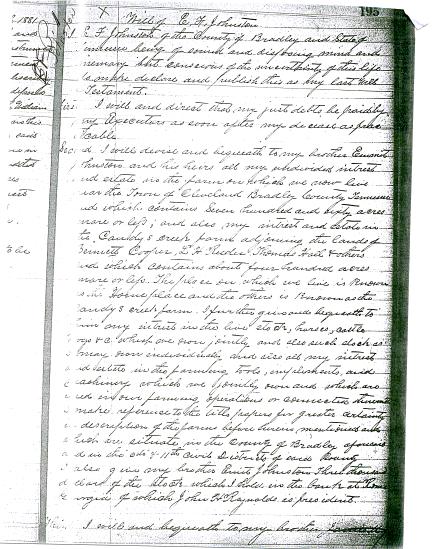 195
1881.
Will of E. F. Johnston
E. F. Johnston of the County of Bradley and State of
being of sound and disposing mind and
memory but conscious of the uncertainty of this life
do make declare and publish this as my last Will
Testament.
I will and direct that my just debts be paid by
my Executors as soon after my decease as prac
ticable
Sec I will devise and bequeath to my brother Ernest
Johnston and his heirs all my undivided interest
and estate in the farm on which we now live
near the Town of Cleveland Bradley County Tennessee
and which contains Seven hundred and eighty acres
more or less; and also my interest and estate in
the Candy's creek farm adjoining the lands of
Cooper, Thomas Hall & others
and which contains about four hundred acres
more or less. The place on which we live is known
as the Home place and the others is known as the
Candy's creek farm. I further give and bequeath to
him my interest in the live stock, horses, cattle
hogs &c. which we own jointly and also such stock as
I may own individually and also all my interest
and estate in the farming tools, implements, and
machinery which we jointly own and which are
used in our farming operations or connected
make reference to the title papers for greater certainty
description of the farms before herein mentioned and
which are situate in the County of Bradley aforesaid
and in the & 11th Civil Districts of said County
I also give my brother Ernest Johnston Three thousand
dollars of the stock which I hold in the bank at Rome
Georgia of which John H Reynolds is president.
I will and bequeath to my brother